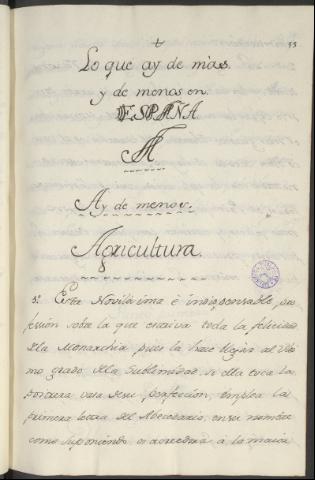 55
Lo que ay de mas
y de menos en
ESPAÑA
A
Ay de menos.
Agricultura.
Esta Nobilissima è indispensable, pro
fession sobre la que estriva toda la felicidad
dla Monarchia pues la hace llegar al Ulti
mo grado dla Sublimidad, si ella toca la
postrera raia de su perfeccion, emplea la
primera letra del Abecedario, en su nombre
como suponiendo es acreedora à la maior